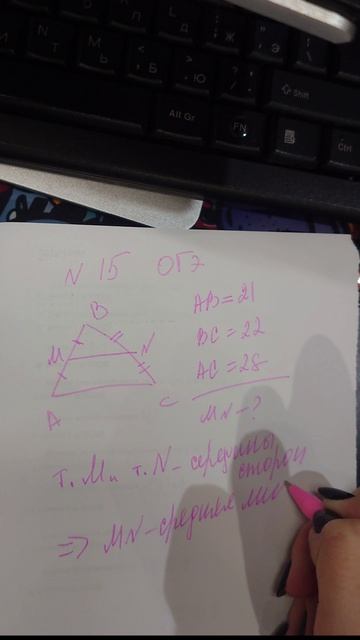 Л Д Ж Э \
И Т Ь Б Ю
N M < > ? /
Shift
Alt Gr
FN
Ctrl
N 15 ОГЭ
B
AB = 21
M
N
BC = 22
AC = 28
A
C
MN - ?
т. M и т. N - середины
сторон
=> MN - средняя